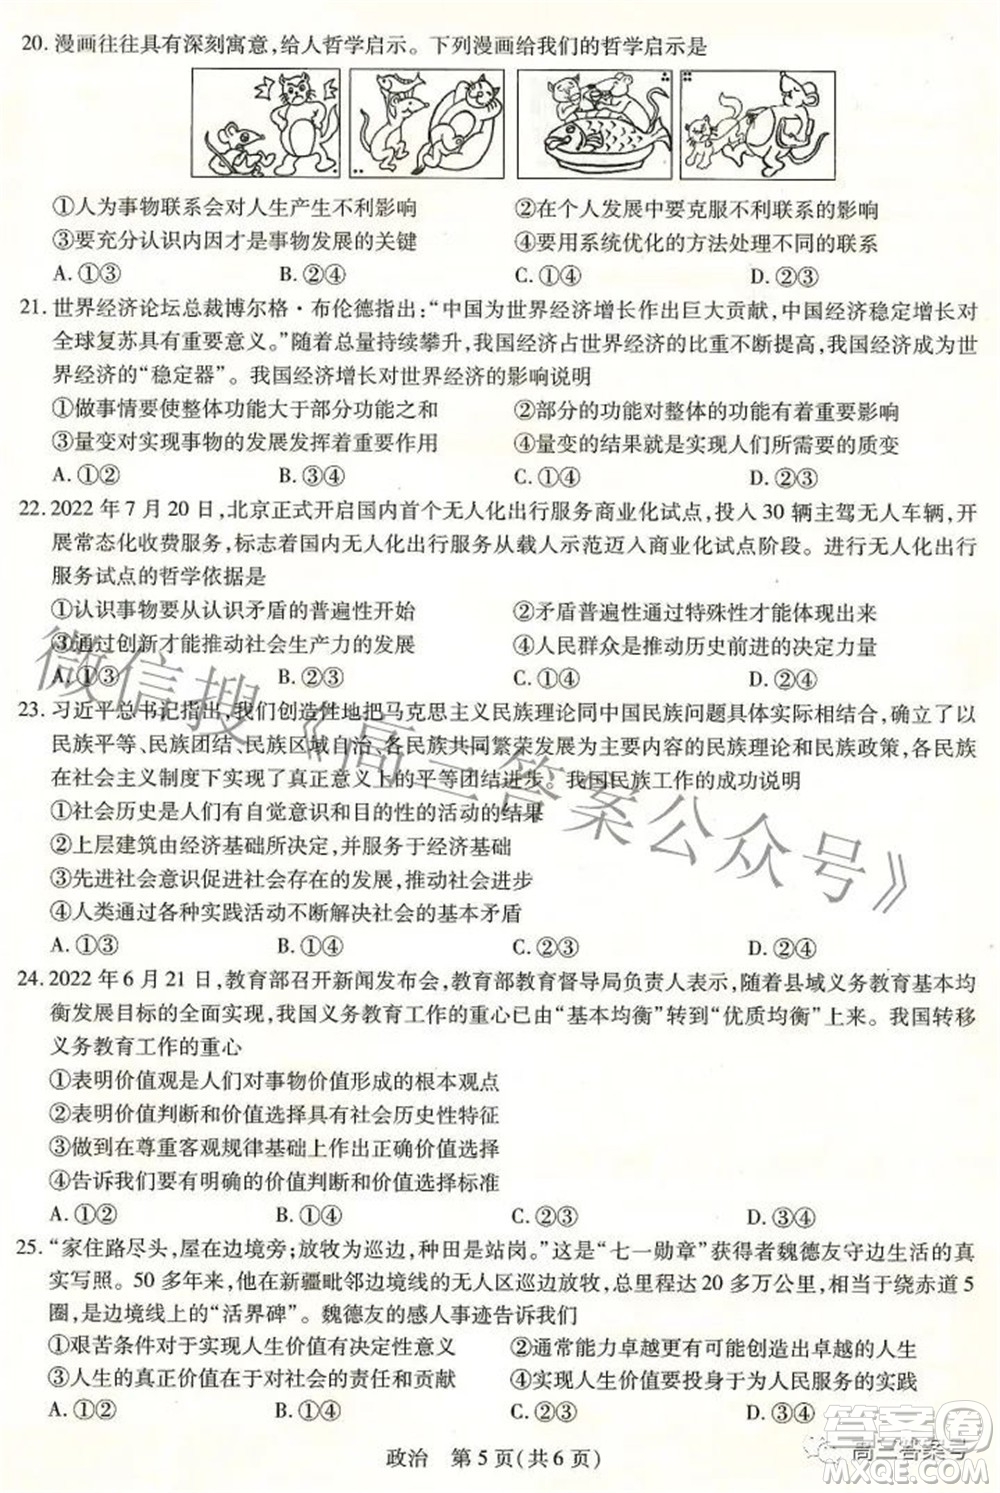 20. 漫画往往具有深刻寓意,给人哲学启示。下列漫画给我们的哲学启示是
①人为事物联系会对人生产生不利影响
②在个人发展中要克服不利联系的影响
③要充分认识内因才是事物发展的关键
④要用系统优化的方法处理不同的联系
A. ①③ B. ②④ C. ①④ D. ②③
21. 世界经济论坛总裁博尔格·布伦德指出:“中国为世界经济增长作出巨大贡献,中国经济稳定增长对
全球复苏具有重要意义。”随着总量持续攀升,我国经济占世界经济的比重不断提高,我国经济成为世
界经济的“稳定器”。我国经济增长对世界经济的影响说明
①做事情要使整体功能大于部分功能之和
②部分的功能对整体的功能有着重要影响
③量变对实现事物的发展发挥着重要作用
④量变的结果就是实现人们所需要的质变
A. ①② B. ③④ C. ①④ D. ②③
22. 2022 年 7 月 20 日,北京正式开启国内首个无人化出行服务商业化试点,投入 30 辆主驾无人车辆,开
展常态化收费服务,标志着国内无人化出行服务从载人示范迈入商业化试点阶段。进行无人化出行
服务试点的哲学依据是
①认识事物要从认识矛盾的普遍性开始
②矛盾普遍性通过特殊性才能体现出来
③通过创新才能推动社会生产力的发展
④人民群众是推动历史前进的决定力量
A. ①③ B. ②③ C. ①④ D. ②④
23. 习近平总书记指出,我们创造性地把马克思主义民族理论同中国民族问题具体实际相结合,确立了以
民族平等、民族团结、民族区域自治、各民族共同繁荣发展为主要内容的民族理论和民族政策,各民族
在社会主义制度下实现了真正意义上的平等团结进步。我国民族工作的成功说明
①社会历史是人们自觉意识和目的性的活动的结果
②上层建筑由经济基础所决定,并服务于经济基础
③先进社会意识促进社会存在的发展,推动社会进步
④人类通过各种实践活动不断解决社会的基本矛盾
A. ①③ B. ①④ C. ②③ D. ②④
24. 2022 年 6 月 21 日,教育部召开新闻发布会,教育部教育督导局负责人表示,随着县域义务教育基本均
衡发展目标的全面实现,我国义务教育工作的重心已由“基本均衡”转到“优质均衡”上来。我国转移
义务教育工作的重心
①表明价值观是人们对事物价值形成的根本观点
②表明价值判断和价值选择具有社会历史性特征
③做到在尊重客观规律基础上作出正确价值选择
④告诉我们要有明确的价值判断和价值选择标准
A. ①② B. ①④ C. ②③ D. ③④
25. “家住路尽头,屋在边境旁;放牧为巡边,种田是站岗。”这是“七一勋章”获得者魏德友守边生活的真
实写照。50 多年来,他在新疆毗邻边境线的无人区巡边放牧,总里程达 20 多万公里,相当于绕赤道 5
圈,是边境线上的“活界碑”。魏德友的感人事迹告诉我们
①艰苦条件对于实现人生价值有决定性意义
②通常能力卓越更有可能创造出卓越的人生
③人生的真正价值在于对社会的责任和贡献
④实现人生价值要投身于为人民服务的实践
A. ①② B. ①④ C. ②③ D. ③④
政治 第 5 页(共 6 页)
微信搜《高三答案公众号》
高三答案号
答案圈
MXQE.COM